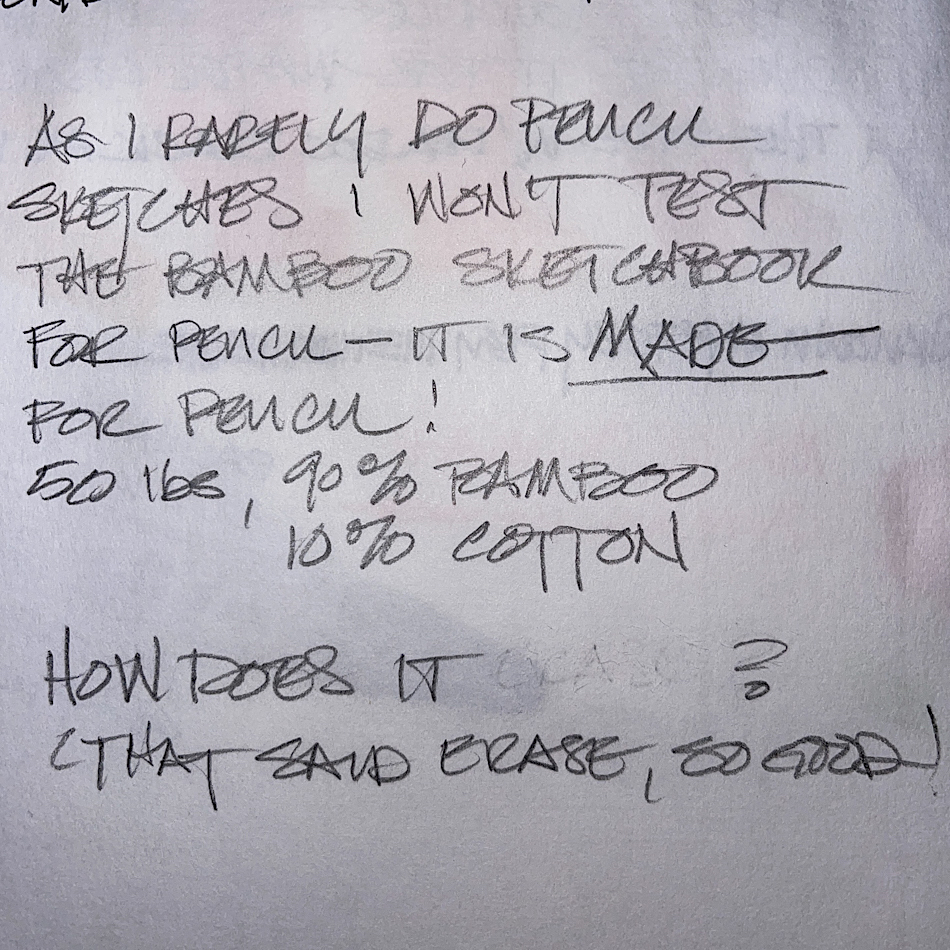 AS I RARELY DO PENCIL
SKETCHES I WON'T TEST
THE BAMBOO SKETCHBOOK
FOR PENCIL — IT IS MADE
FOR PENCIL!
50 lbs, 90% BAMBOO
10% COTTON
HOW DOES IT ERASE ?
(THAT SAID ERASE, SO GOOD)